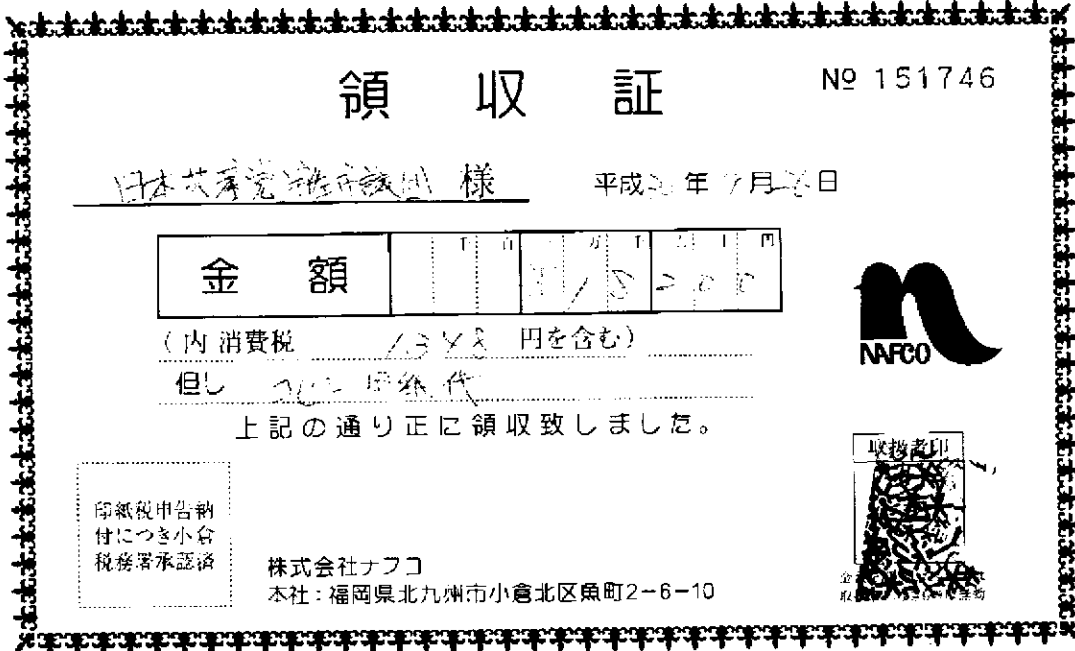 領収証
№ 151746
日本共産党 様
平成 年 月 日
金額
千 百 万 千 円
¥18200
(内消費税 1348 円を含む)
但し 用紙代
上記の通り正に領収致しました。
NAFCO
取扱者印
印紙税申告納
付につき小倉
税務署承認済
株式会社ナフコ
本社:福岡県北九州市小倉北区魚町2-6-10